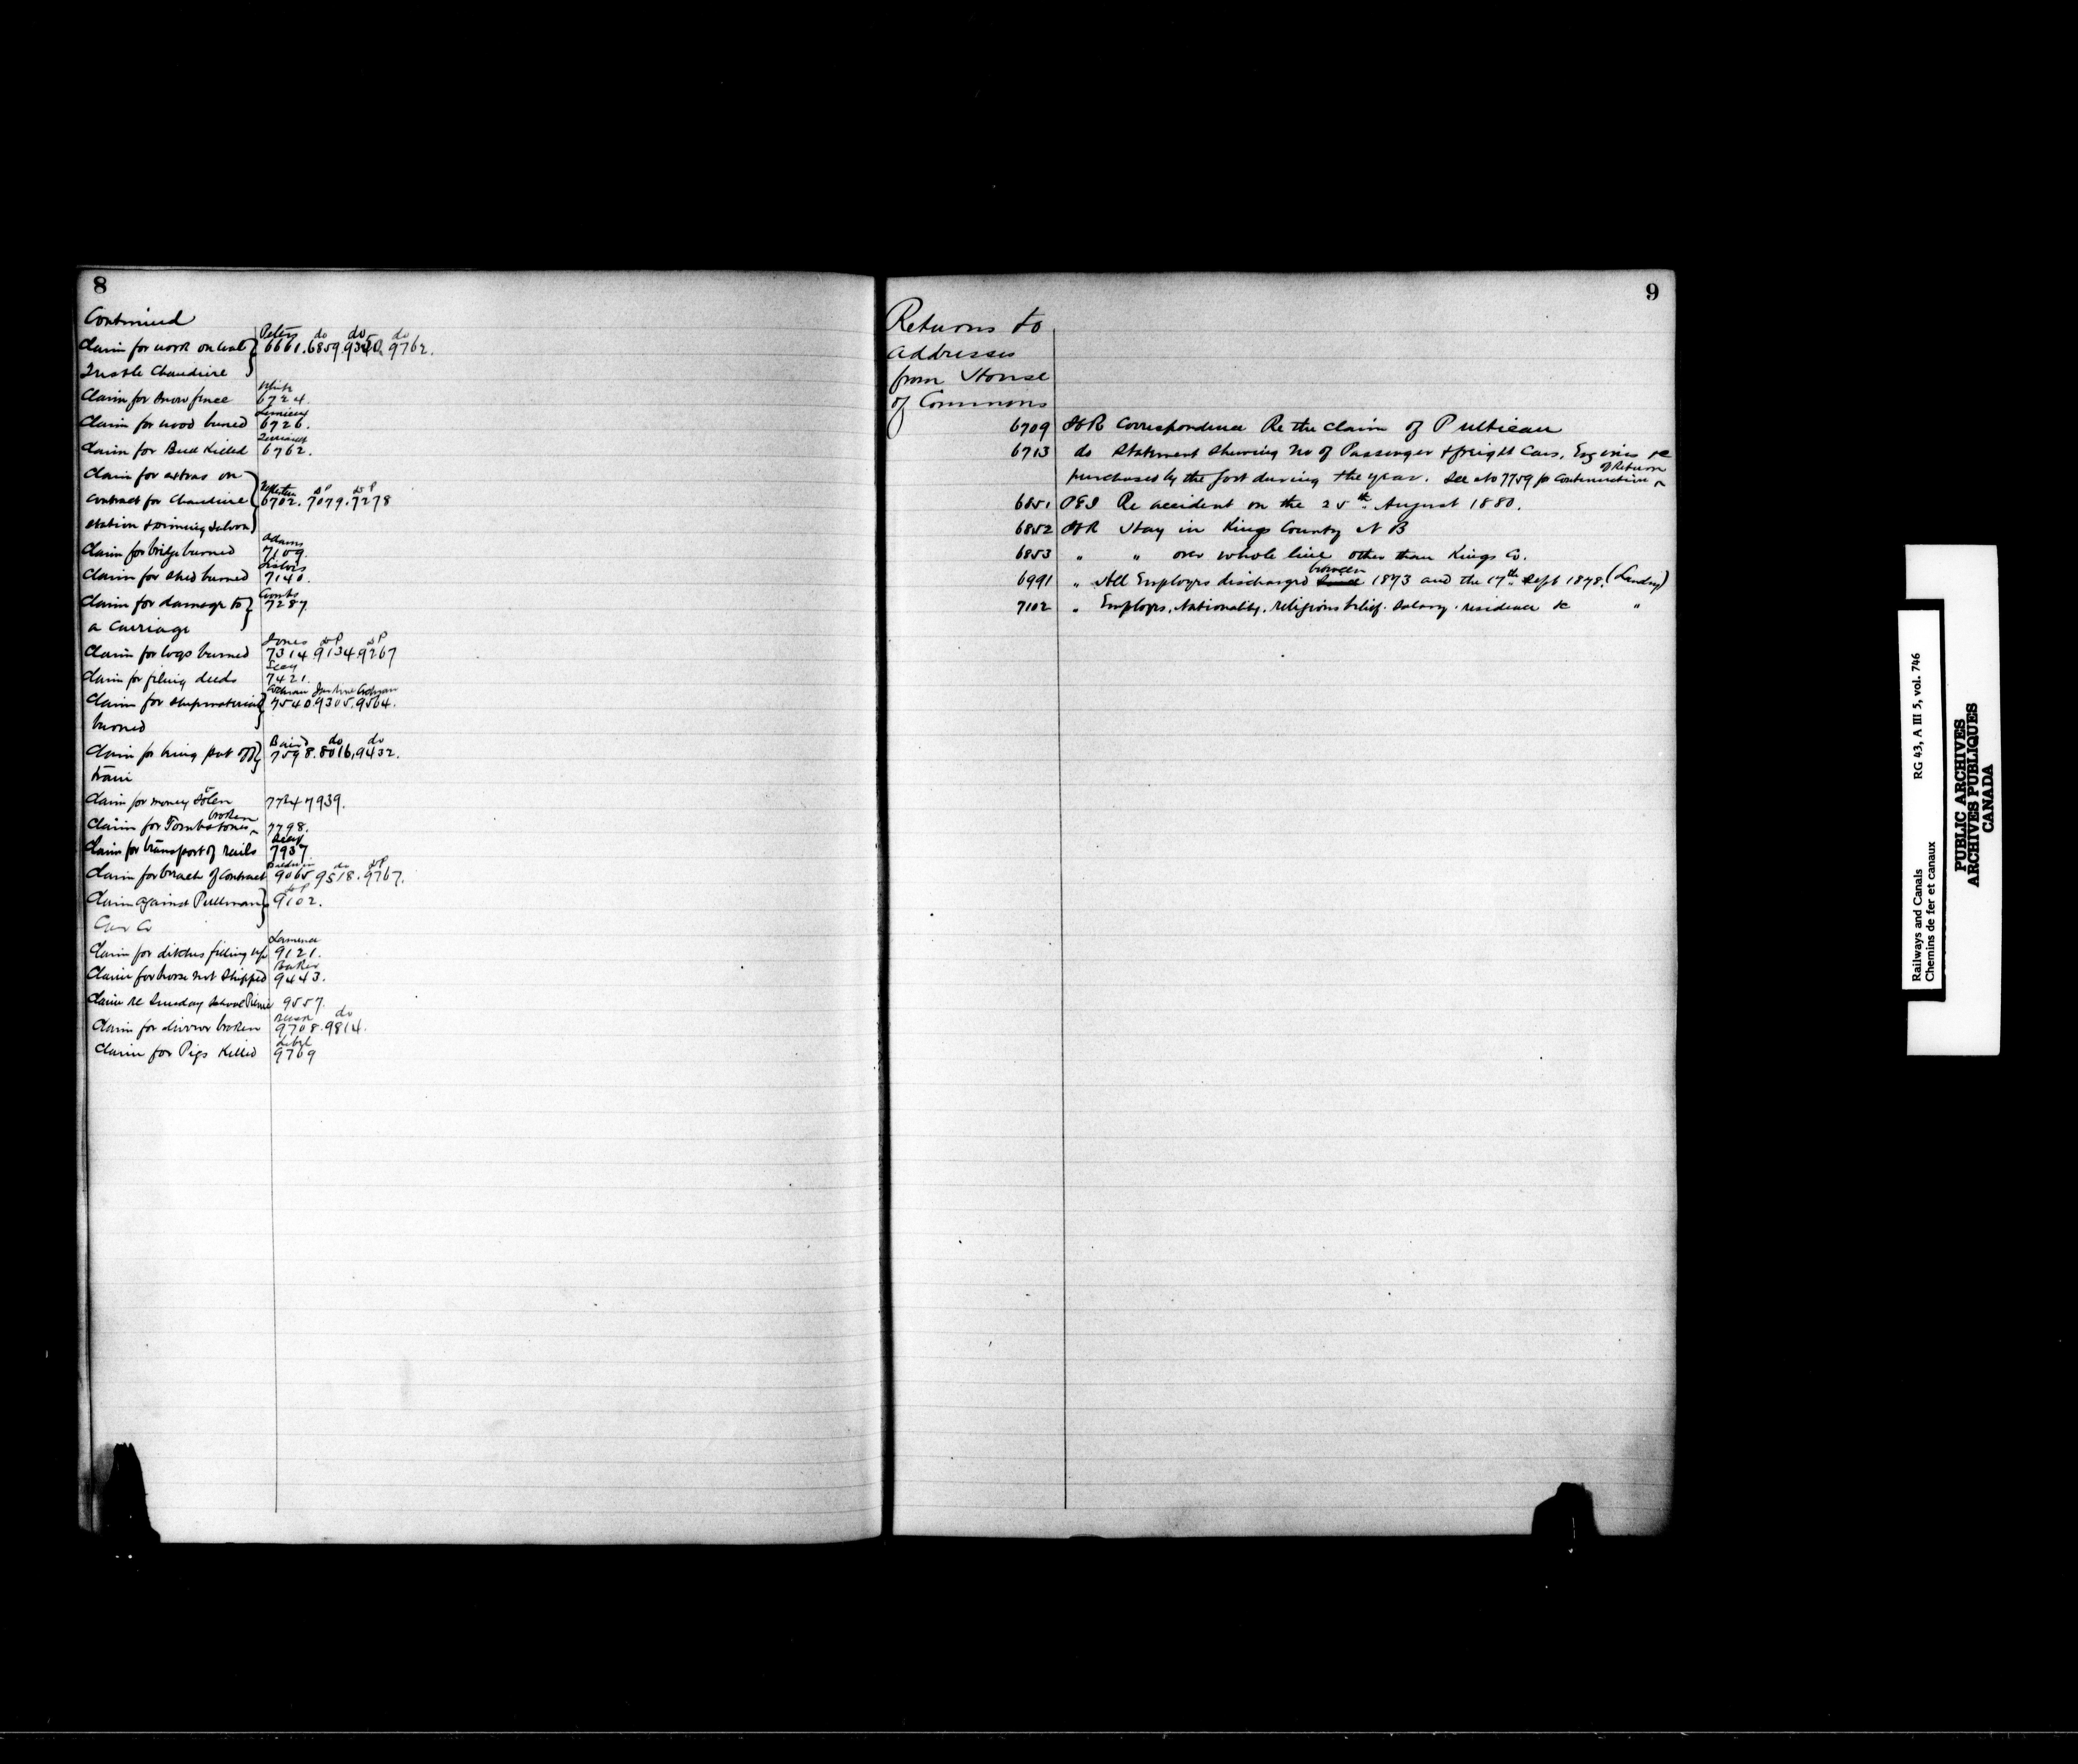 8
Continued
Peters do do do
Claim for work on 6661. 6859. 9350. 9762.
Trestle Chaudiere
White
Claim for snow fence 6724.
Lemieux
Claim for wood burned 6726.
Claim for Bull Killed 6762.
Claim for extras on
contract for Chaudiere 6702. 7079. 7278
station & dining saloon
Adams
Claim for bridge burned 7109.
Claim for shed burned 7140.
Claim for damage to 7287
a Carriage
Jones do P do P
Claim for logs burned 7314 9134 9267
Claim for filing deeds 7421.
Claim for shipmaterial 7540. 9305. 9564.
burned
Baird do do
Claim for being put off 7598. 8016. 9432.
train
Claim for money stolen 7724 7939.
broken
Claim for Tombstones 7798.
Claim for transport of rails 7937
Baldwin do do P
Claim for breach of Contract 9065 9518. 9767.
do P
Claim against Pullman 9102.
Car Co
Claim for ditches filling up 9121.
Baker
Claim for horse not Shipped 9443.
Claim re Sunday School Picnic 9557.
do
Claim for mirror broken 9708. 9814.
Claim for Pigs Killed 9769
9
Returns to
addresses
from House
of Commons
6709 ICR Correspondence Re the Claim of P
6713 do Statement Shewing No of Passenger & freight Cars, Engines &c
of Return
purchased by the Govt during the year. See No 7759 for Continuation
6851 PEI Re accident on the 25th August 1880.
6852 ICR Hay in Kings County N B
6853 " " over whole line other than Kings Co.
between
6991 " All Employes discharged 1873 and the 17th Sept 1878. (Landry)
7102 " Employes, Nationality, religious belief. Salary. residence &c "
Railways and Canals RG 43, A III 5, vol. 746
Chemins de fer et canaux
PUBLIC ARCHIVES
ARCHIVES PUBLIQUES
CANADA